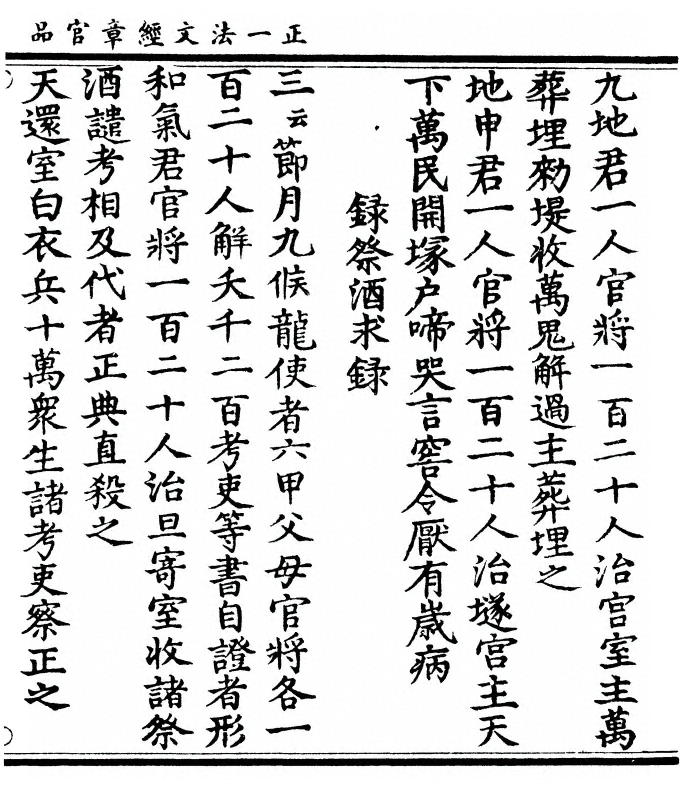 正一法文經章官品
九地君一人官將一百二十人治宫室主萬
葬埋勑堤收萬鬼解過主葬埋之
地申君一人官將一百二十人治墜宫主天
下萬民開塚户啼哭言窖令厭有嵗病
録祭酒求録
三云節月九候龍使者六甲父母官將各一
百二十人解夭千二百考吏等書自證者形
和氣君官將一百二十人治旦寄室收諸祭
酒譴考相及代者正典直殺之
天還室白衣兵十萬衆生諸考吏察正之